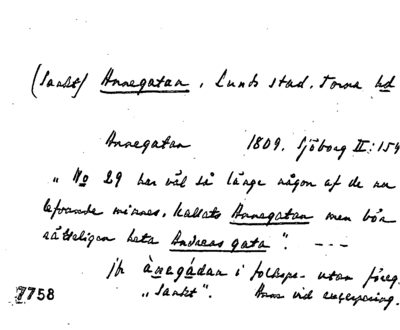 (Sankt) Annegatan, Lunds stad. Torna hd
Annegatan 1809. Sjöborg II:154
„ No 29 har väl så länge någon af de nu
lefvande minnes, kallats Annegatan men bör
rätteligen heta Andreas gata". ---
jfr ànegádan i folkspr. utan föreg.
„Sankt". Anm vid excerpering.
7758